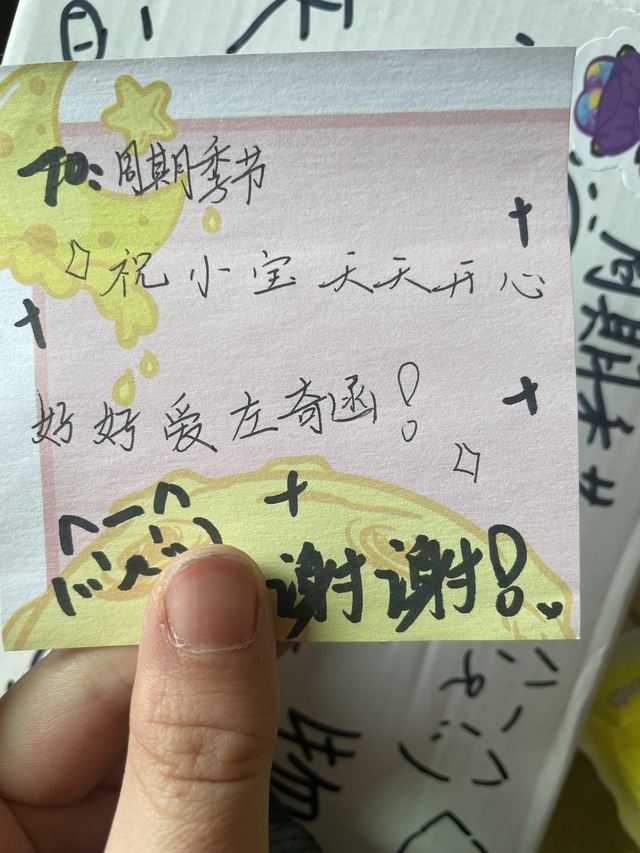 TO：周期季节
祝小宝天天开心
好好爱左奇函！
谢谢！
周期季"
物